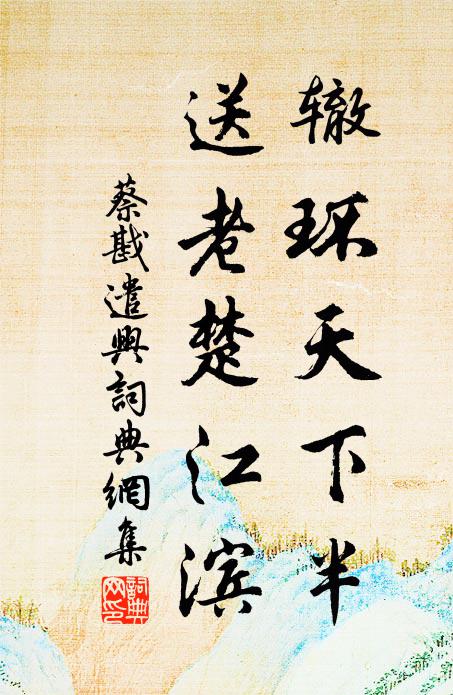 辙环天下半
送老楚江滨
蔡戡遣興詞典網集
詞典